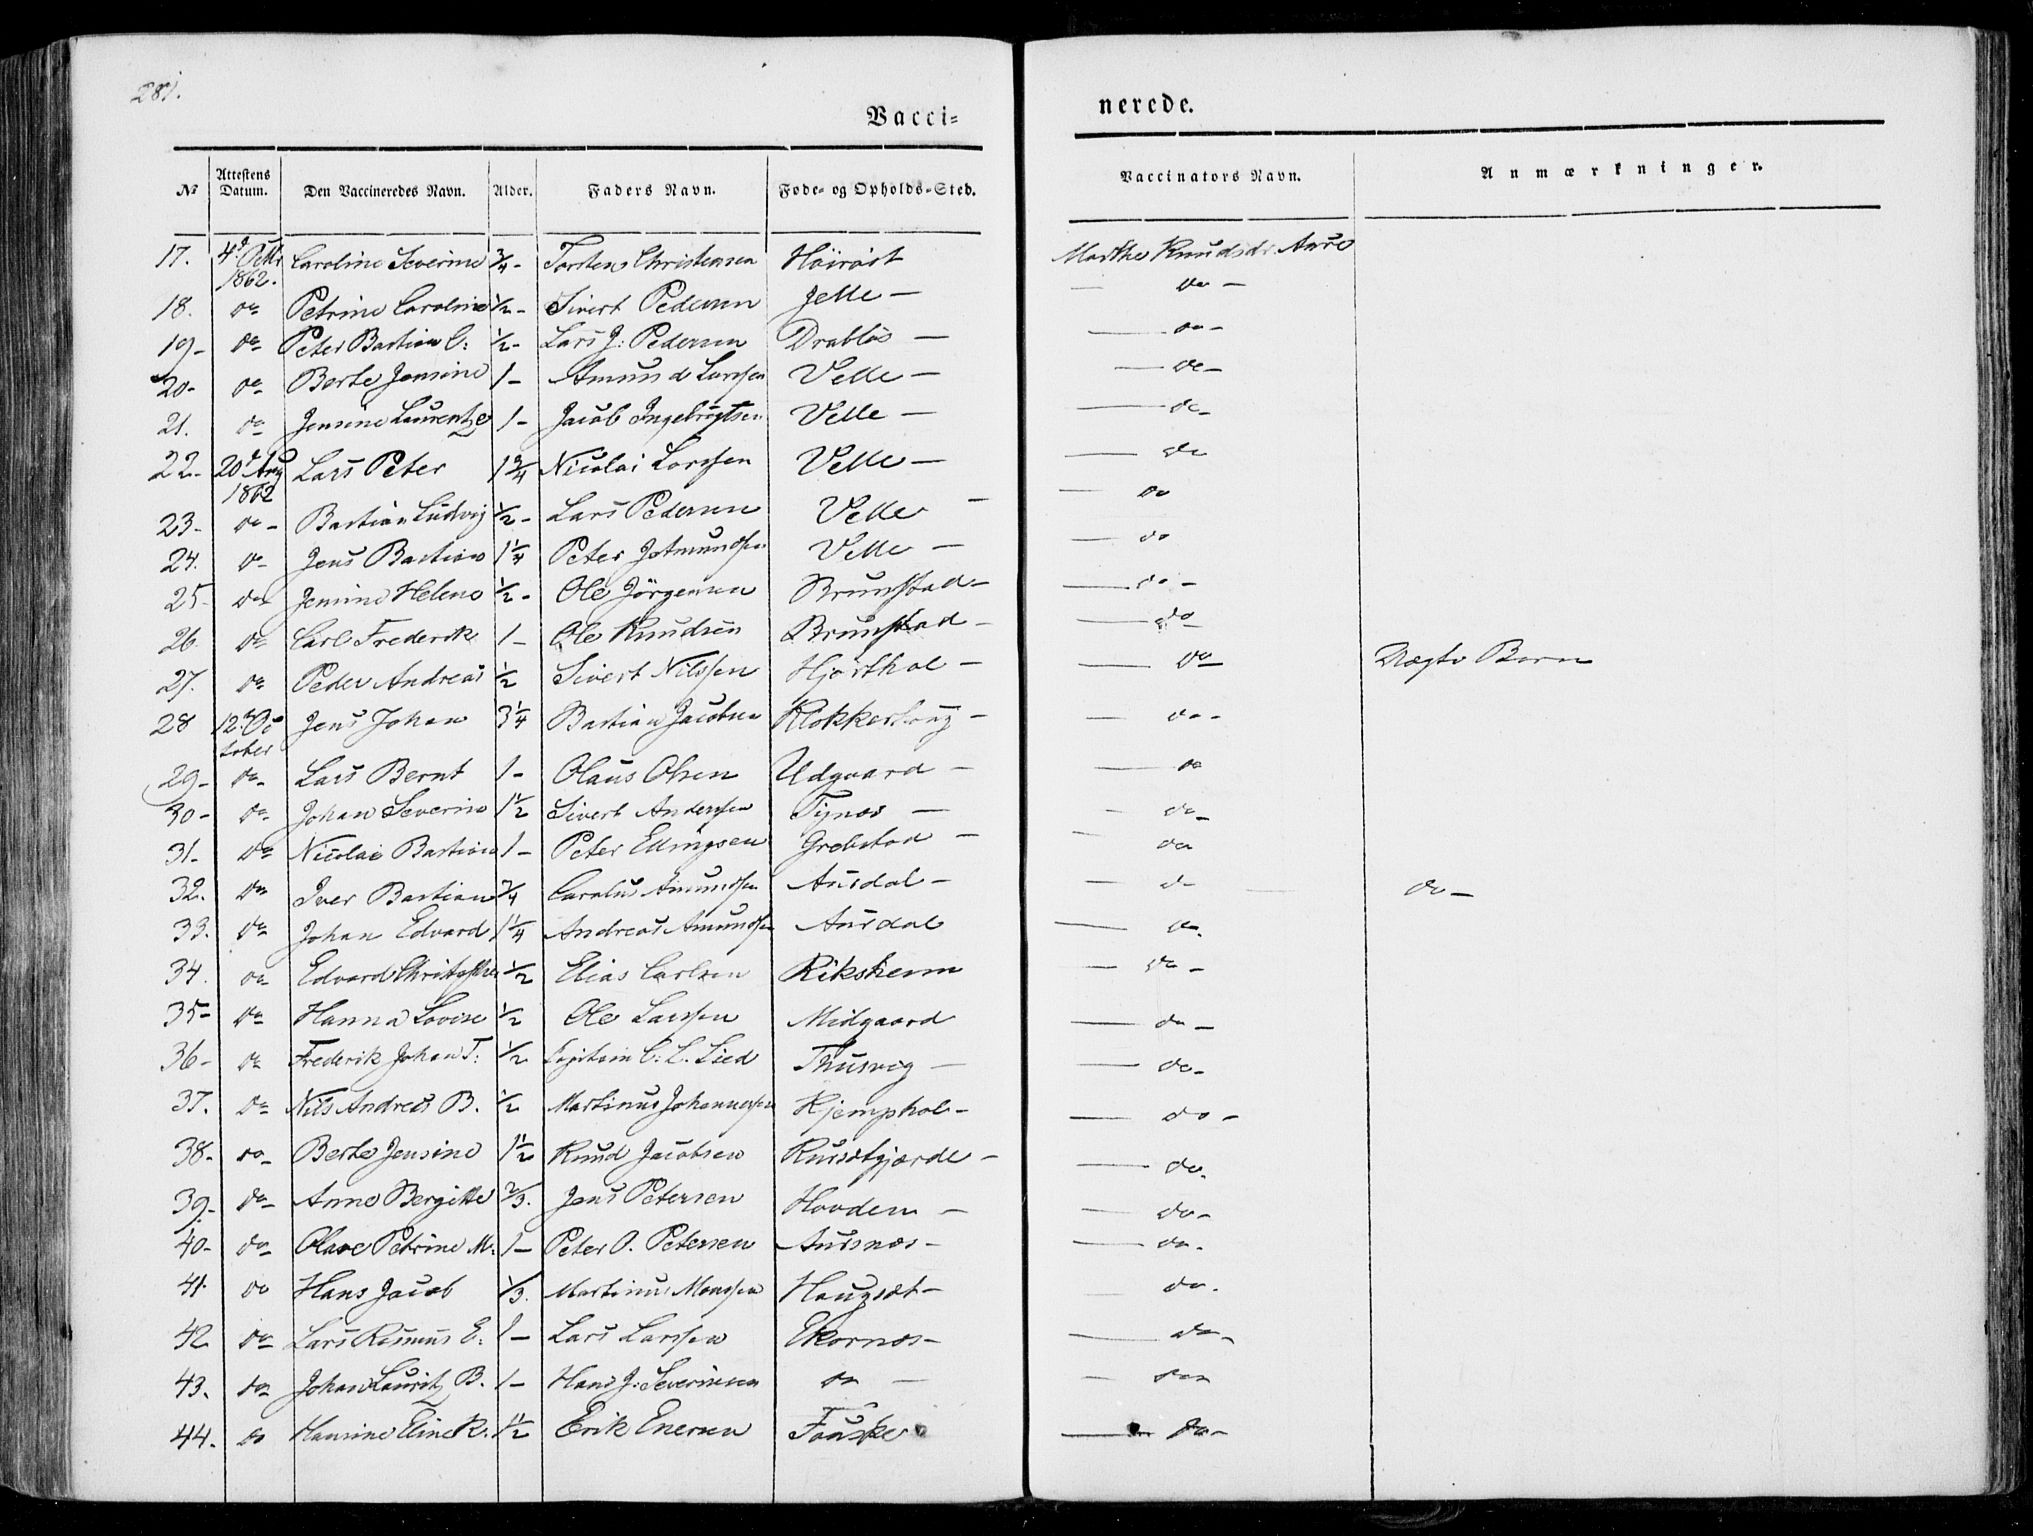 281.
Vacci= nerede.
№ Attestens Datum. Den Vaccineredes Navn. Alder. Faders Navn. Føde- og Opholds-Sted. Vaccinators Navn. Anmærkninger.
17. 4d Octbr 1862. Caroline Severine 3/4 - Torsten Christensen Høiråst Marthe Knudsdr. Aure
18. do Petrine Caroline 1/2 - Sivert Pedersen Jelle — — do —
19 - do Peter Bastian C: 1/2 - Lars J: Pedersen Drabløs — — do -
20 - do Berte Jensine 1 - Amund Larssen Velle — — do -
21. do Jensine Laurentze 1 - Jacob Ingebrigtsen Velle — — do -
22 - 20d Aug 1862 Lars Peter 1 3/4 Nicolai Larssen Velle — — do
23 - do - Bastian Ludvig 1/2 - Lars Pedersen Velle — — do
24. do Jens Bastian 1 1/4 Peter Jetmundsen Velle — — do
25 do Jensine Helene 1/2 - Ole Jörgensen Brunstad - — do -
26 do Carl Frederik 1 - Ole Knudsen Brunstad - — do
27. do Peder Andreas 1/2 Sivert Nilssen Hjorthol - — do Uægte Barn
28 12te October Jens Johan 3 1/4 Bastian Jacobsen Klokkerhoug - — do -
29 - do Lars Bernt 1 - Olaus Olsen Udgaard - — do
30 - do Johan Severin 1 1/2 Sivert Anderssen Tynes — - do -
31 - do Nicolai Bastian 1 - Peter Ellingsen Grebstad — — do
32. do Iver Bastian 3/4 Carolus Amundsen Aursdal - — do — do —
33. do Johan Edvard 1 1/4 Andreas Amundsen Aursdal — do.
34. do Edvard Christoffer 1/2 Elias Carlsen Riksheim — do -
35 - do Hanna Lovise 1/2 Ole Larssen Midgaard — do -
36 - do Frederik Johan T: 1/2 Capitain C: L. Lied Thusvig — — do -
37. do Nils Andreas B. 1/2 Martinus Johannessen Kjemphol - — do -
38 - do Berte Jensine 1 1/2 Knud Jacobsen Kursætgjærde - — do.
39 - do Anne Bergitte 2/3. Jens Petersen Hovden - — do -
40 - do Olave Petrine M: 1 - Peter O. Petersen Aursnes - — do -
41. do Hans Jacob 1/3. Martinus Monssen Haugsæt - — do.
42 do Lars Rasmus E: 1 - Lars Larssen Ekornes - — do -
43. do Johan Lauritz B. 1 - Hans J: Severinsen do — - do
44. do Hansine Eline K. 1 1/2 Erik Enersen Fauske — do -